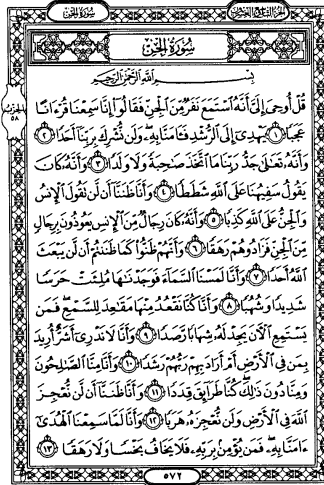 الجزء التاسع والعشرون
سورة الجن
الحزب ٥٨
سُورَةُ الجِنِّ
بِسْمِ اللَّهِ الرَّحْمَٰنِ الرَّحِيمِ
قُلْ أُوحِىَ إِلَىَّ أَنَّهُ ٱسْتَمَعَ نَفَرٌ مِّنَ ٱلْجِنِّ فَقَالُوٓا۟ إِنَّا سَمِعْنَا قُرْءَانًا
عَجَبًا ١ يَهْدِىٓ إِلَى ٱلرُّشْدِ فَـَٔامَنَّا بِهِۦ وَلَن نُّشْرِكَ بِرَبِّنَآ أَحَدًا ٢
وَأَنَّهُۥ تَعَٰلَىٰ جَدُّ رَبِّنَا مَا ٱتَّخَذَ صَٰحِبَةً وَلَا وَلَدًا ٣ وَأَنَّهُۥ كَانَ
يَقُولُ سَفِيهُنَا عَلَى ٱللَّهِ شَطَطًا ٤ وَأَنَّا ظَنَنَّآ أَن لَّن تَقُولَ ٱلْإِنسُ
وَٱلْجِنُّ عَلَى ٱللَّهِ كَذِبًا ٥ وَأَنَّهُۥ كَانَ رِجَالٌ مِّنَ ٱلْإِنسِ يَعُوذُونَ بِرِجَالٍ
مِّنَ ٱلْجِنِّ فَزَادُوهُمْ رَهَقًا ٦ وَأَنَّهُمْ ظَنُّوا۟ كَمَا ظَنَنتُمْ أَن لَّن يَبْعَثَ
ٱللَّهُ أَحَدًا ٧ وَأَنَّا لَمَسْنَا ٱلسَّمَآءَ فَوَجَدْنَٰهَا مُلِئَتْ حَرَسًا
شَدِيدًا وَشُهُبًا ٨ وَأَنَّا كُنَّا نَقْعُدُ مِنْهَا مَقَٰعِدَ لِلسَّمْعِ فَمَن
يَسْتَمِعِ ٱلْـَٔانَ يَجِدْ لَهُۥ شِهَابًا رَّصَدًا ٩ وَأَنَّا لَا نَدْرِىٓ أَشَرٌّ أُرِيدَ
بِمَن فِى ٱلْأَرْضِ أَمْ أَرَادَ بِهِمْ رَبُّهُمْ رَشَدًا ١٠ وَأَنَّا مِنَّا ٱلصَّٰلِحُونَ
وَمِنَّا دُونَ ذَٰلِكَ كُنَّا طَرَآئِقَ قِدَدًا ١١ وَأَنَّا ظَنَنَّآ أَن لَّن نُّعْجِزَ
ٱللَّهَ فِى ٱلْأَرْضِ وَلَن نُّعْجِزَهُۥ هَرَبًا ١٢ وَأَنَّا لَمَّا سَمِعْنَا ٱلْهُدَىٰٓ
ءَامَنَّا بِهِۦ فَمَن يُؤْمِنۢ بِرَبِّهِۦ فَلَا يَخَافُ بَخْسًا وَلَا رَهَقًا ١٣
٥٧٢